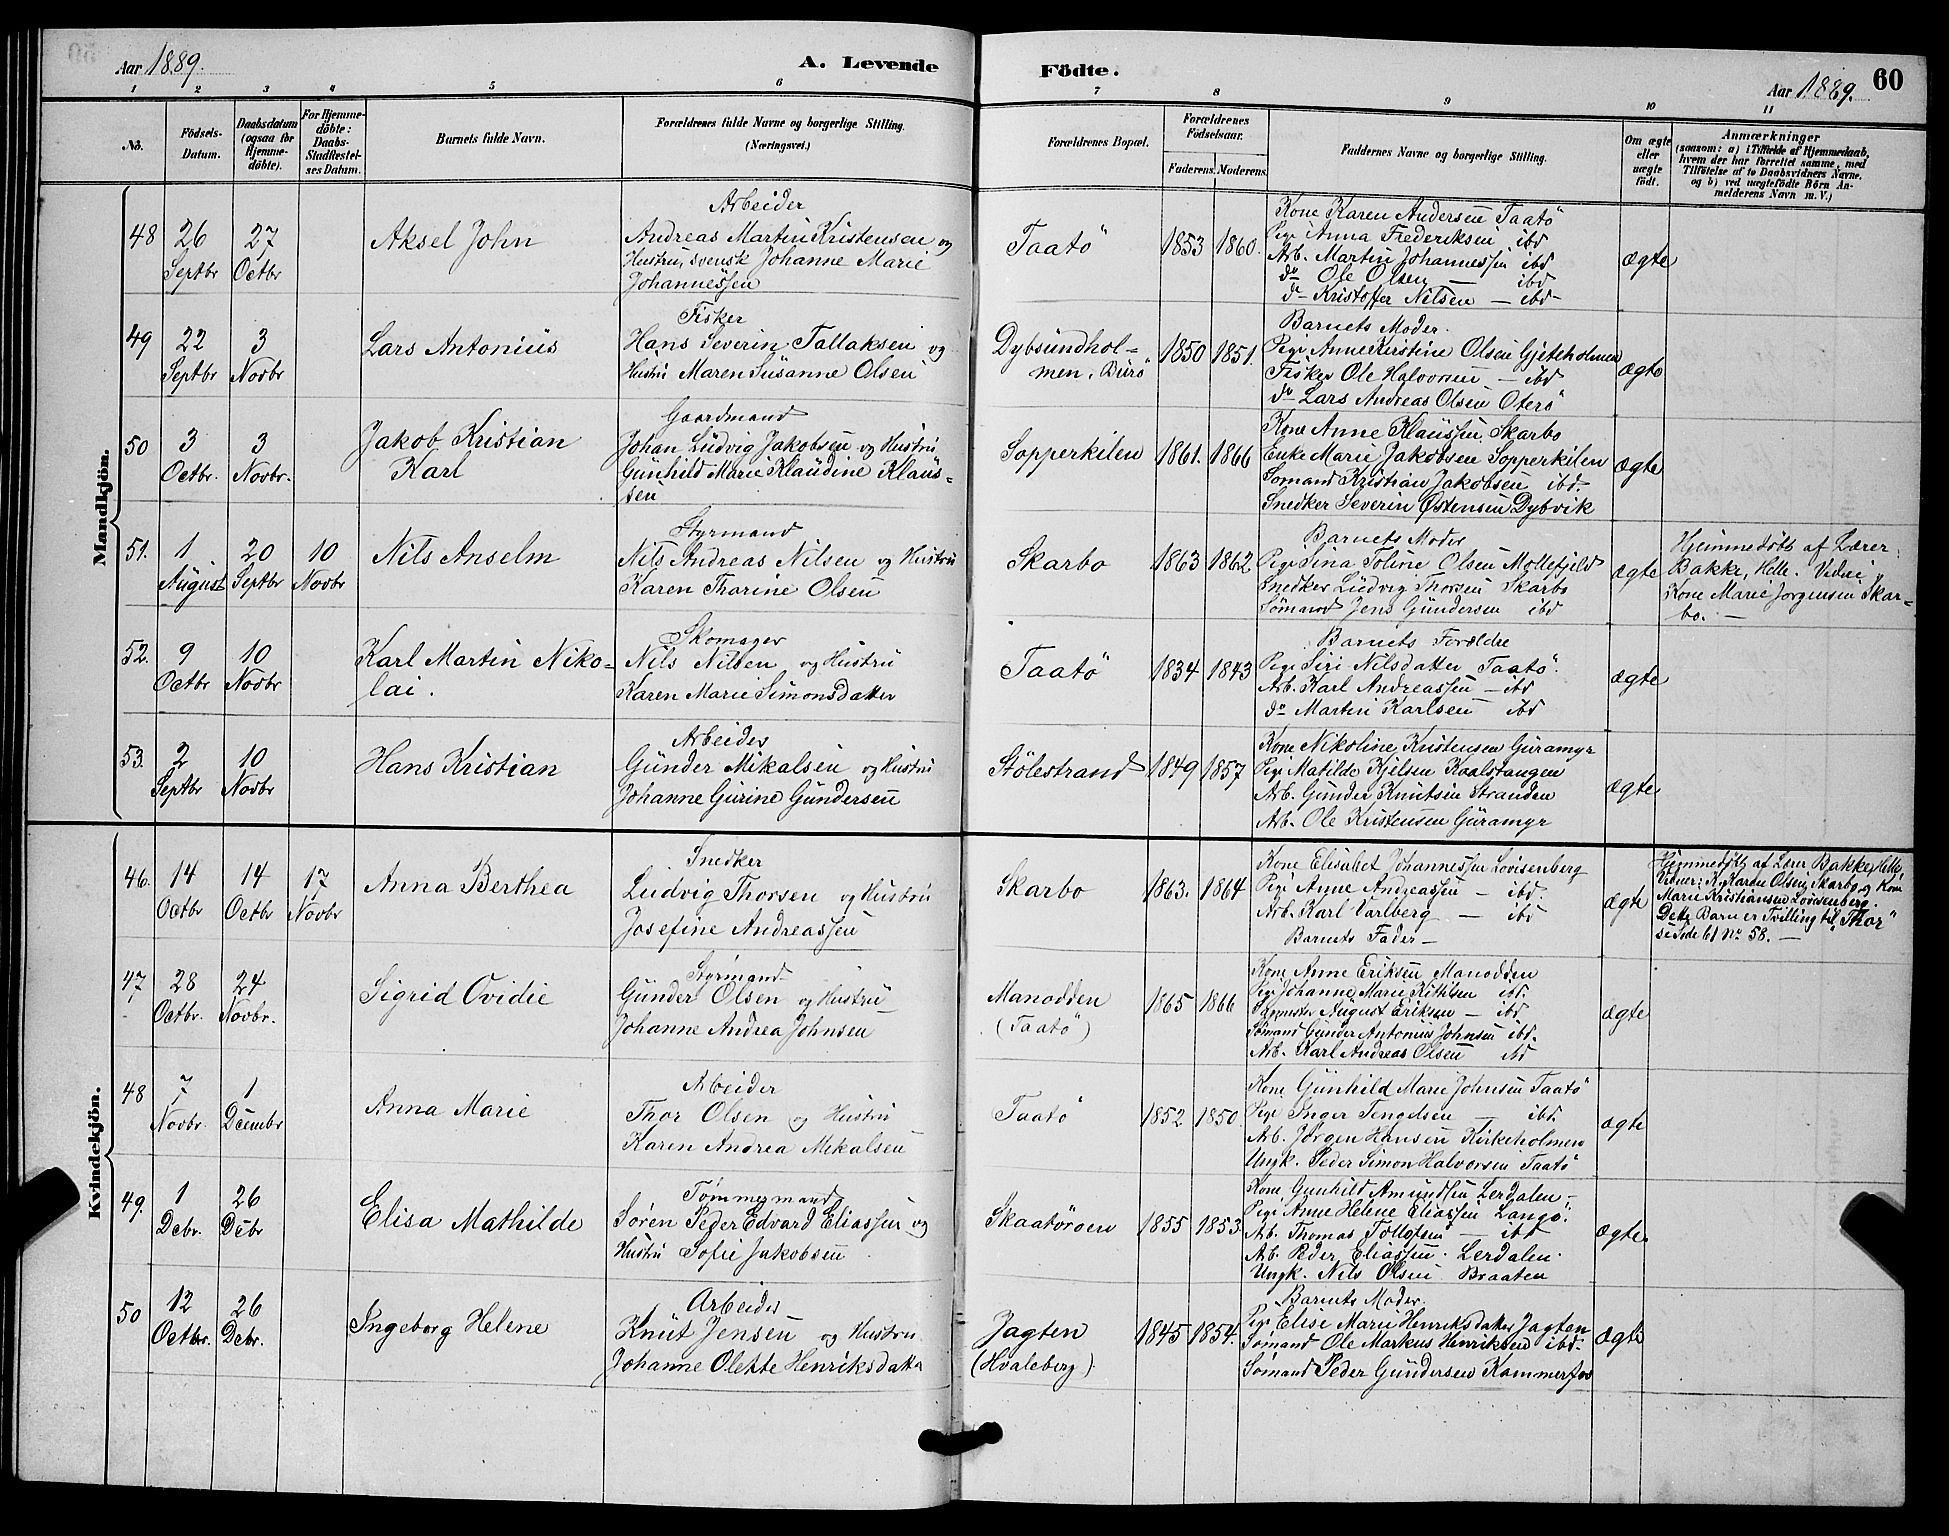 Aar 1889.
A. Levende
Födte.
Aar 1889.
60
1 2 3 4 5 6 7 8 9 10 11
No.
Födsels-
Datum.
Daabsdatum
(ogsaa for
Hjemme-
döbte).
For Hjemme-
döbte:
Daabs-
Stadfæstel-
ses Datum.
Barnets fulde Navn.
Forældrenes fulde Navne og borgerlige Stilling.
(Næringsvei.)
Forældrenes Bopæl.
Forældrenes
Födselsaar.
Faderens. Moderens.
Faddernes Navne og borgerlige Stilling.
Om ægte
eller
uægte
födt.
Anmærkninger
(saasom: a) i Tilfælde af Hjemmedaab,
hvem der har forrettet samme, med
Tilföielse af to Daabsvidners Navne,
og b) ved uægtefödte Börn An-
melderens Navn m. V.)
Mandkjön.
48
26
Septbr
27
Octbr
Aksel John
Arbeider
Andreas Martin Kristensen og
Hustru, svensk Johanne Marie
Johannessen
Taatö
1853 1860.
Kone Karen Andersen Taatö
Pige Anna Frederiksen ibd
Arb. Martin Johannessen ibd
do Ole Olsen — ibd
do Kristoffer Nilsen — ibd
ægte
49
22
Septbr
3
Novbr
Lars Antonius
Fisker
Hans Severin Tallaksen og
Hustru Maren Susanne Olsen
Dybsundhol-
men, Burö
1850 1851.
Barnets Moder.
Pige Anne Kirstine Olsen Gjeteholmen
Fisker Ole Halvorsen — ibd
do Lars Andreas Olsen Oterö
ægte
50
3
Octbr.
3
Novbr.
Jakob Kristian
Karl
Gaardmand
Johan Ludvig Jakobsen og Hustru
Gunhild Marie Klaudine Klaus-
sen
Sopperkilen
1861. 1866
Kone Anne Klaussen Skarbo
Enke Marie Jakobsen Sopperkilen
Sömand Kristian Jakobsen ibd.
Snedker Severin Østensen Dybvik
ægte
51.
1
August
20
Septbr
10
Novbr
Nils Anselm
Styrmand
Nils Andreas Nilsen og Hustru
Karen Thorine Olsen
Skarbo
1863 1862
Barnets Moder
Pige Sina Toline Olsen Mollefjeld
Snedker Ludvig Thorsen Skarbo
Sömand Jens Gundersen ibd
ægte
Hjemmedöbt af Lærer
Bakke, Helle. Vidne:
Kone Marie Jorgensen Skar-
bo. —
52.
9
Octbr
10
Novbr
Karl Martin Niko-
lai.
Skomager
Nils Nilsen og Hustru
Karen Marie Simonsdatter
Taatö
1834 1843
Barnets Forældre
Pige Siri Nilsdatter Taatö
Arb. Karl Andreassen — ibd
do Martin Karlsen ibd
ægte
53.
2
Septbr
10
Novbr
Hans Kristian
Arbeider
Gunder Mikalsen og Hustru
Johanne Gurine Gundersen
Stölestrand
1849 1857
Kone Nikoline Kristensen Guramyr
Pige Matilde Kjelsen Kaalstangen
Arb. Gunder Knutsen Stranden
Arb. Ole Kristensen Guramyr
ægte
Kvindekjön.
46.
14
Octbr
14
Octbr
17
Novbr
Anna Berthea
Snedker
Ludvig Thorsen og Hustru
Josefine Andreassen
Skarbo
1863. 1864
Kone Elisabet Johannessen Lovisenberg
Pige Anne Andreassen — ibd.
Arb. Karl Varlberg — ibd
Barnets Fader —
ægte
Hjemmedöbt af Lærer Bakke, Helle,
Vidner: K. Karen Olsen, Skarbo og Kone
Marie Kristiansen Lovisenberg.
Dette Barn er Tvilling til "Thor"
se Side 61 No 58. —
47
28
Octbr.
24
Novbr.
Sigrid Ovidie
Styrmand
Gunder Olsen og Hustru
Johanne Andrea Johnsen
Manodden
(Taatö)
1865 1866
Kone Anne Eriksen Manodden
Pige Johanne Marie Kittilsen ibd.
August Eriksen — ibd
Sömand Gunder Antonius Johnsen ibd.
Arb. Karl Andreas Olsen ibd
ægte
48
7
Novbr.
1
Decembr
Anna Marie
Arbeider
Thor Olsen og Hustru
Karen Andrea Mekalsen
Taatö
1852 1850.
Kone Gunhild Marie Johnsen Taatö
Pige Inger Tengelsen — ibd.
Arb. Jörgen Hansen Kirkeholmen
Ungk. Peder Simon Halvorsen Taatö
ægte
49.
1
Debr.
26
Debr
Elisa Mathilde
Tømmermand
Sören Peder Edvard Eliassen og
Hustru Sofie Jakobsen
Skaatöroen
1855 1853.
Kone Gunhild Amundsen Lerdalen —
Pige Anne Helene Eliassen Langö.
Arb. Thomas Tollefsen — ibd
Arb. Peder Eliassen. Lerdalen.
Ungk. Nils Olsen Braaten
ægte
50
12
Octbr.
26
Debr.
Ingeborg Helene
Arbeider
Knut Jensen og Hustru
Johanne Olette Henriksdatter
Jagten
(Hvaleberg)
1845 1854.
Barnets Moder.
Pige Elise Marie Henriksdatter Jagten
Sömand Ole Markus Henriksen ibd.
Sömand Peder Gundersen Kammerfos
ægte